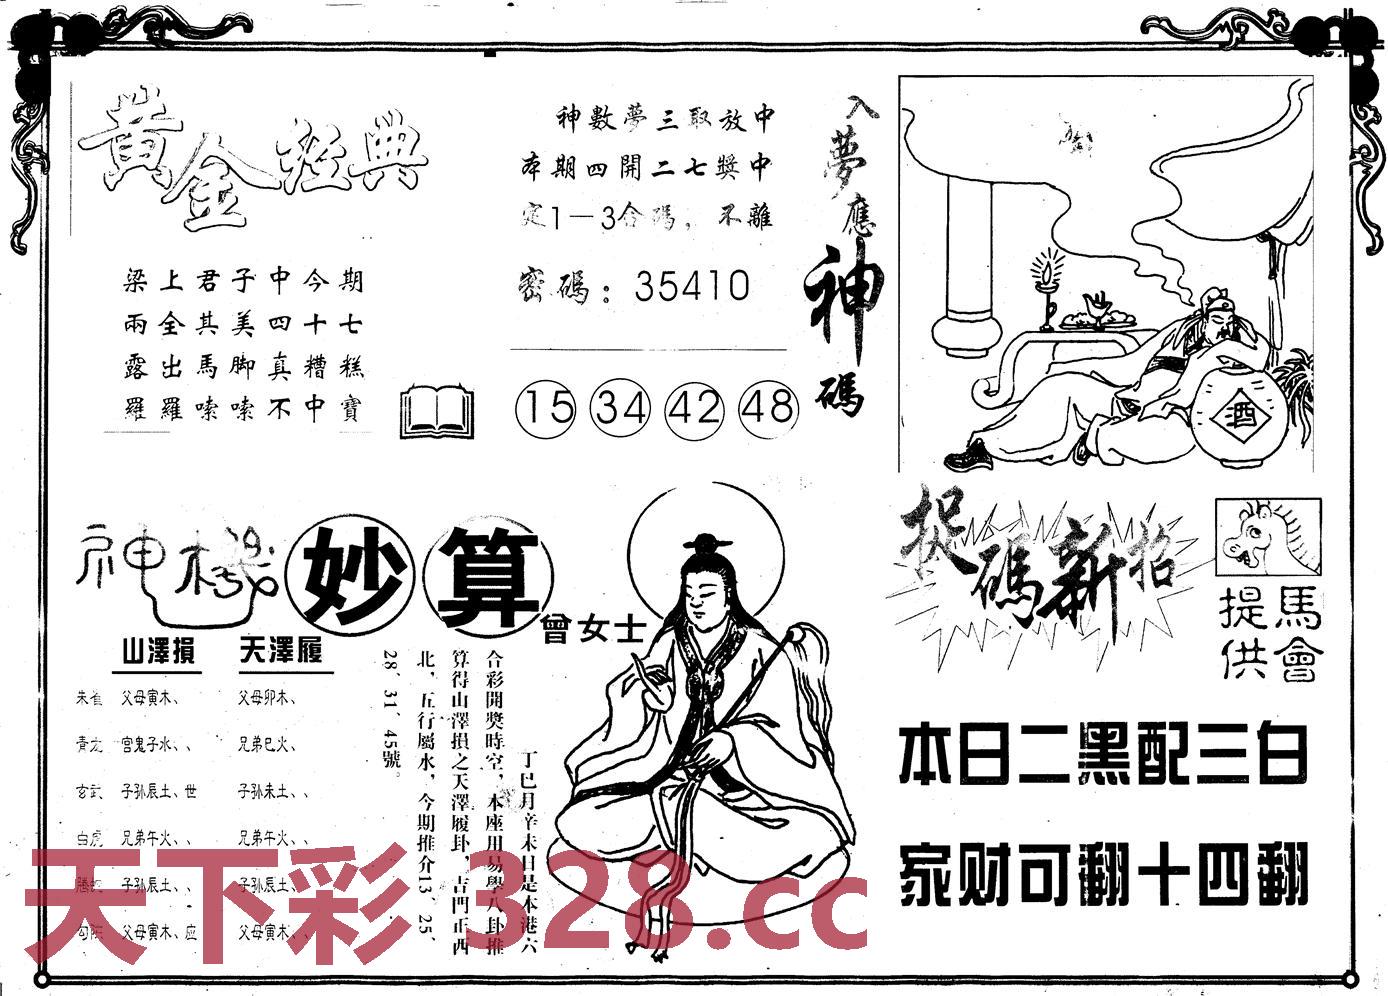 黄金经典
梁上君子中今期
兩全其美四十七
露出馬脚真糟糕
羅羅嗦嗦不中寶
神數夢三取放中
本期四開二七獎中
定1－3合碼，不離
密碼：35410
15 34 42 48
入夢應神碼
酒
神機妙算
曾女士
山澤損 天澤履
朱雀 父母寅木、 父母卯木、
青龙 官鬼子水、、 兄弟巳火、
玄武 子孙辰土、世 子孙未土、、
白虎 兄弟午火、、 兄弟午火、
腾蛇 子孙辰土、、 子孙辰土、
勾陈 父母寅木、应 父母寅木、
丁巳月辛未日是本港六
合彩開獎時空，本座用易學八卦推
算得山澤損之天澤履卦，吉門正西
北，五行屬水，今期推介13、25、
28、31、45號。
捉碼新招
馬會
提供
本日二黑配三白
家财可翻十四翻
天下彩 328.cc